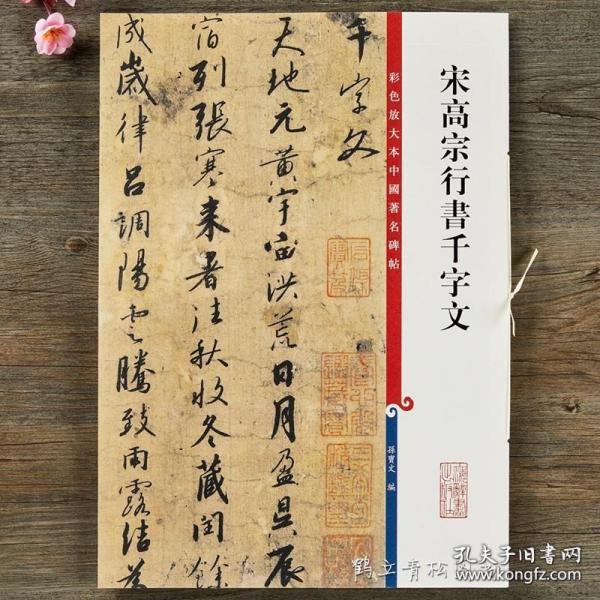 宋高宗行書千字文
彩色放大本中國著名碑帖
孫寶文 編
千字文
天地元黄宇宙洪荒日月盈昃辰
宿列張寒来暑往秋收冬藏閏餘
成歲律吕調陽雲騰致雨露结為
鹤立青松
孔夫子旧書网
www.kongfz.com